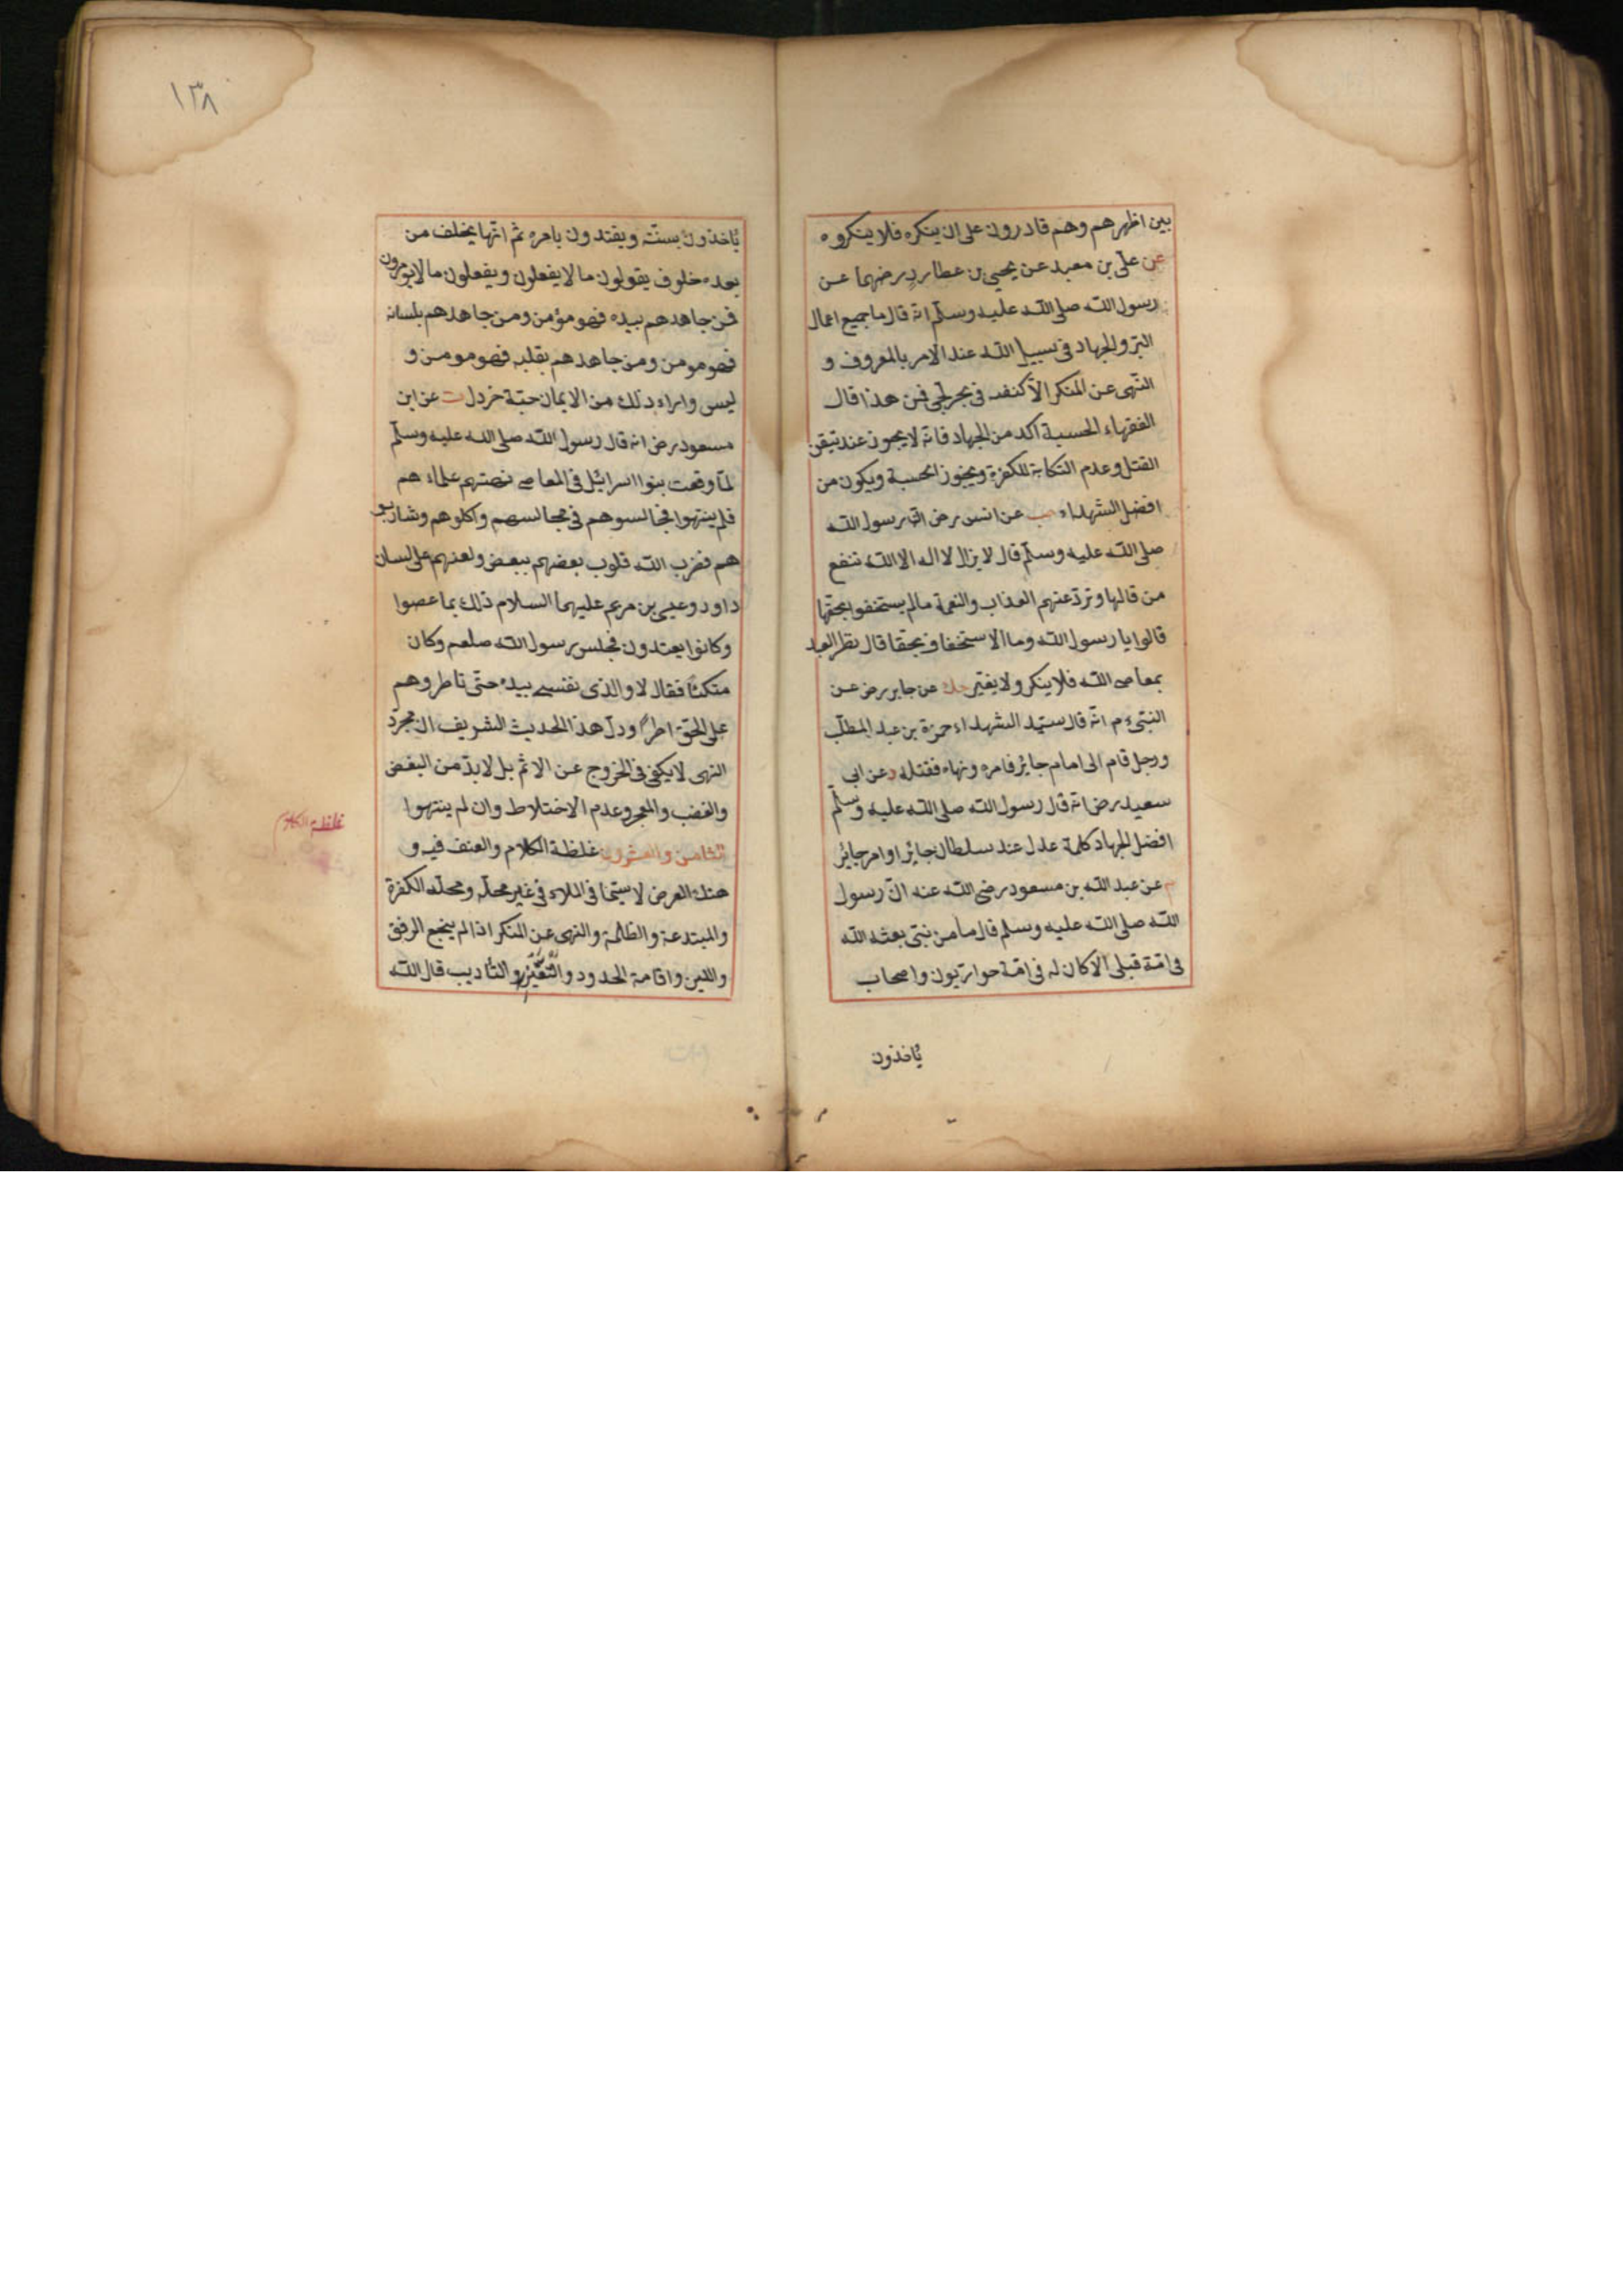 بين اظهرهم وهم قادرون على ان ينكره فلا ينكروه
عن على بن معبد عن يحيى بن عطارد رضهما عن
رسول الله صلى الله عليه وسلم انه قال ما جميع اعمال
البر والجهاد فى سبيل الله عند الامر بالمعروف و
النهى عن المنكر الا كنفث فى بحر لجى فمن هذا قال
الفقهاء الحسبة آكد من الجهاد فانه لا يجوز عند تيقن
القتل وعدم النكاية للكفرة ويجوز الحسبة ويكون من
افضل الشهداء عن انس رض ان رسول الله
صلى الله عليه وسلم قال لا يزال لا اله الا الله تنفع
من قالها وترد عنهم العذاب والنقمة مالم يستخفوا بحقها
قالوا يا رسول الله وما الاستخفاف بحقها قال يظهر العبد
بمعاصى الله فلا ينكر ولا يغير حك عن جابر رض عن
النبى ءم انه قال سيد الشهداء حمزة بن عبد المطلب
ورجل قام الى امام جائر فامره ونهاه فقتله د عن ابى
سعيد رض انه قال رسول الله صلى الله عليه وسلم
افضل الجهاد كلمة عدل عند سلطان جائر او امر جائر
م عن عبد الله بن مسعود رضى الله عنه ان رسول
الله صلى الله عليه وسلم قال ما من نبى بعثه الله
فى امة قبلى الا كان له فى امة حواريون واصحاب
يأخذون
١٣٨
يأخذون بسنته ويقتدون بامره ثم انها يخلف من
بعده خلوف يقولون ما لا يفعلون ويفعلون ما لا يؤمرون
فمن جاهدهم بيده فهو مؤمن ومن جاهدهم بلسانه
فهو مومن ومن جاهدهم بقلبه فهو مومن و
ليس وراء ذلك من الايمان حبة خردل ت عن ابن
مسعود رض انه قال رسول الله صلى الله عليه وسلم
لما وقعت بنوا اسرائيل فى المعاصى نهتهم علماءهم
فلم ينتهوا فجالسوهم فى مجالسهم واكلوهم وشاربو
هم فضرب الله قلوب بعضهم ببعض ولعنهم على لسان
داود وعيسى بن مريم عليهما السلام ذلك بما عصوا
وكانوا يعتدون فجلس رسول الله صلعم وكان
متكئا فقال لا والذى نفسى بيده حتى تاطروهم
على الحق اطرا ودل هذا الحديث الشريف ان مجرد
النهى لا يكفى فى الخروج عن الاثم بل لابد من البغض
والغضب والهجر وعدم الاختلاط وان لم ينتهوا
الثامن والعشرون غلظة الكلام والعنف فيه و
هتك العرض لا سيما فى الملاء فى غير محله ومحله الكفرة
والمبتدعة والظالمة والنهى عن المنكر اذا لم ينجع الرفق
واللين واقامة الحدود والتعزير والتأديب قال الله
غلظة الكلام